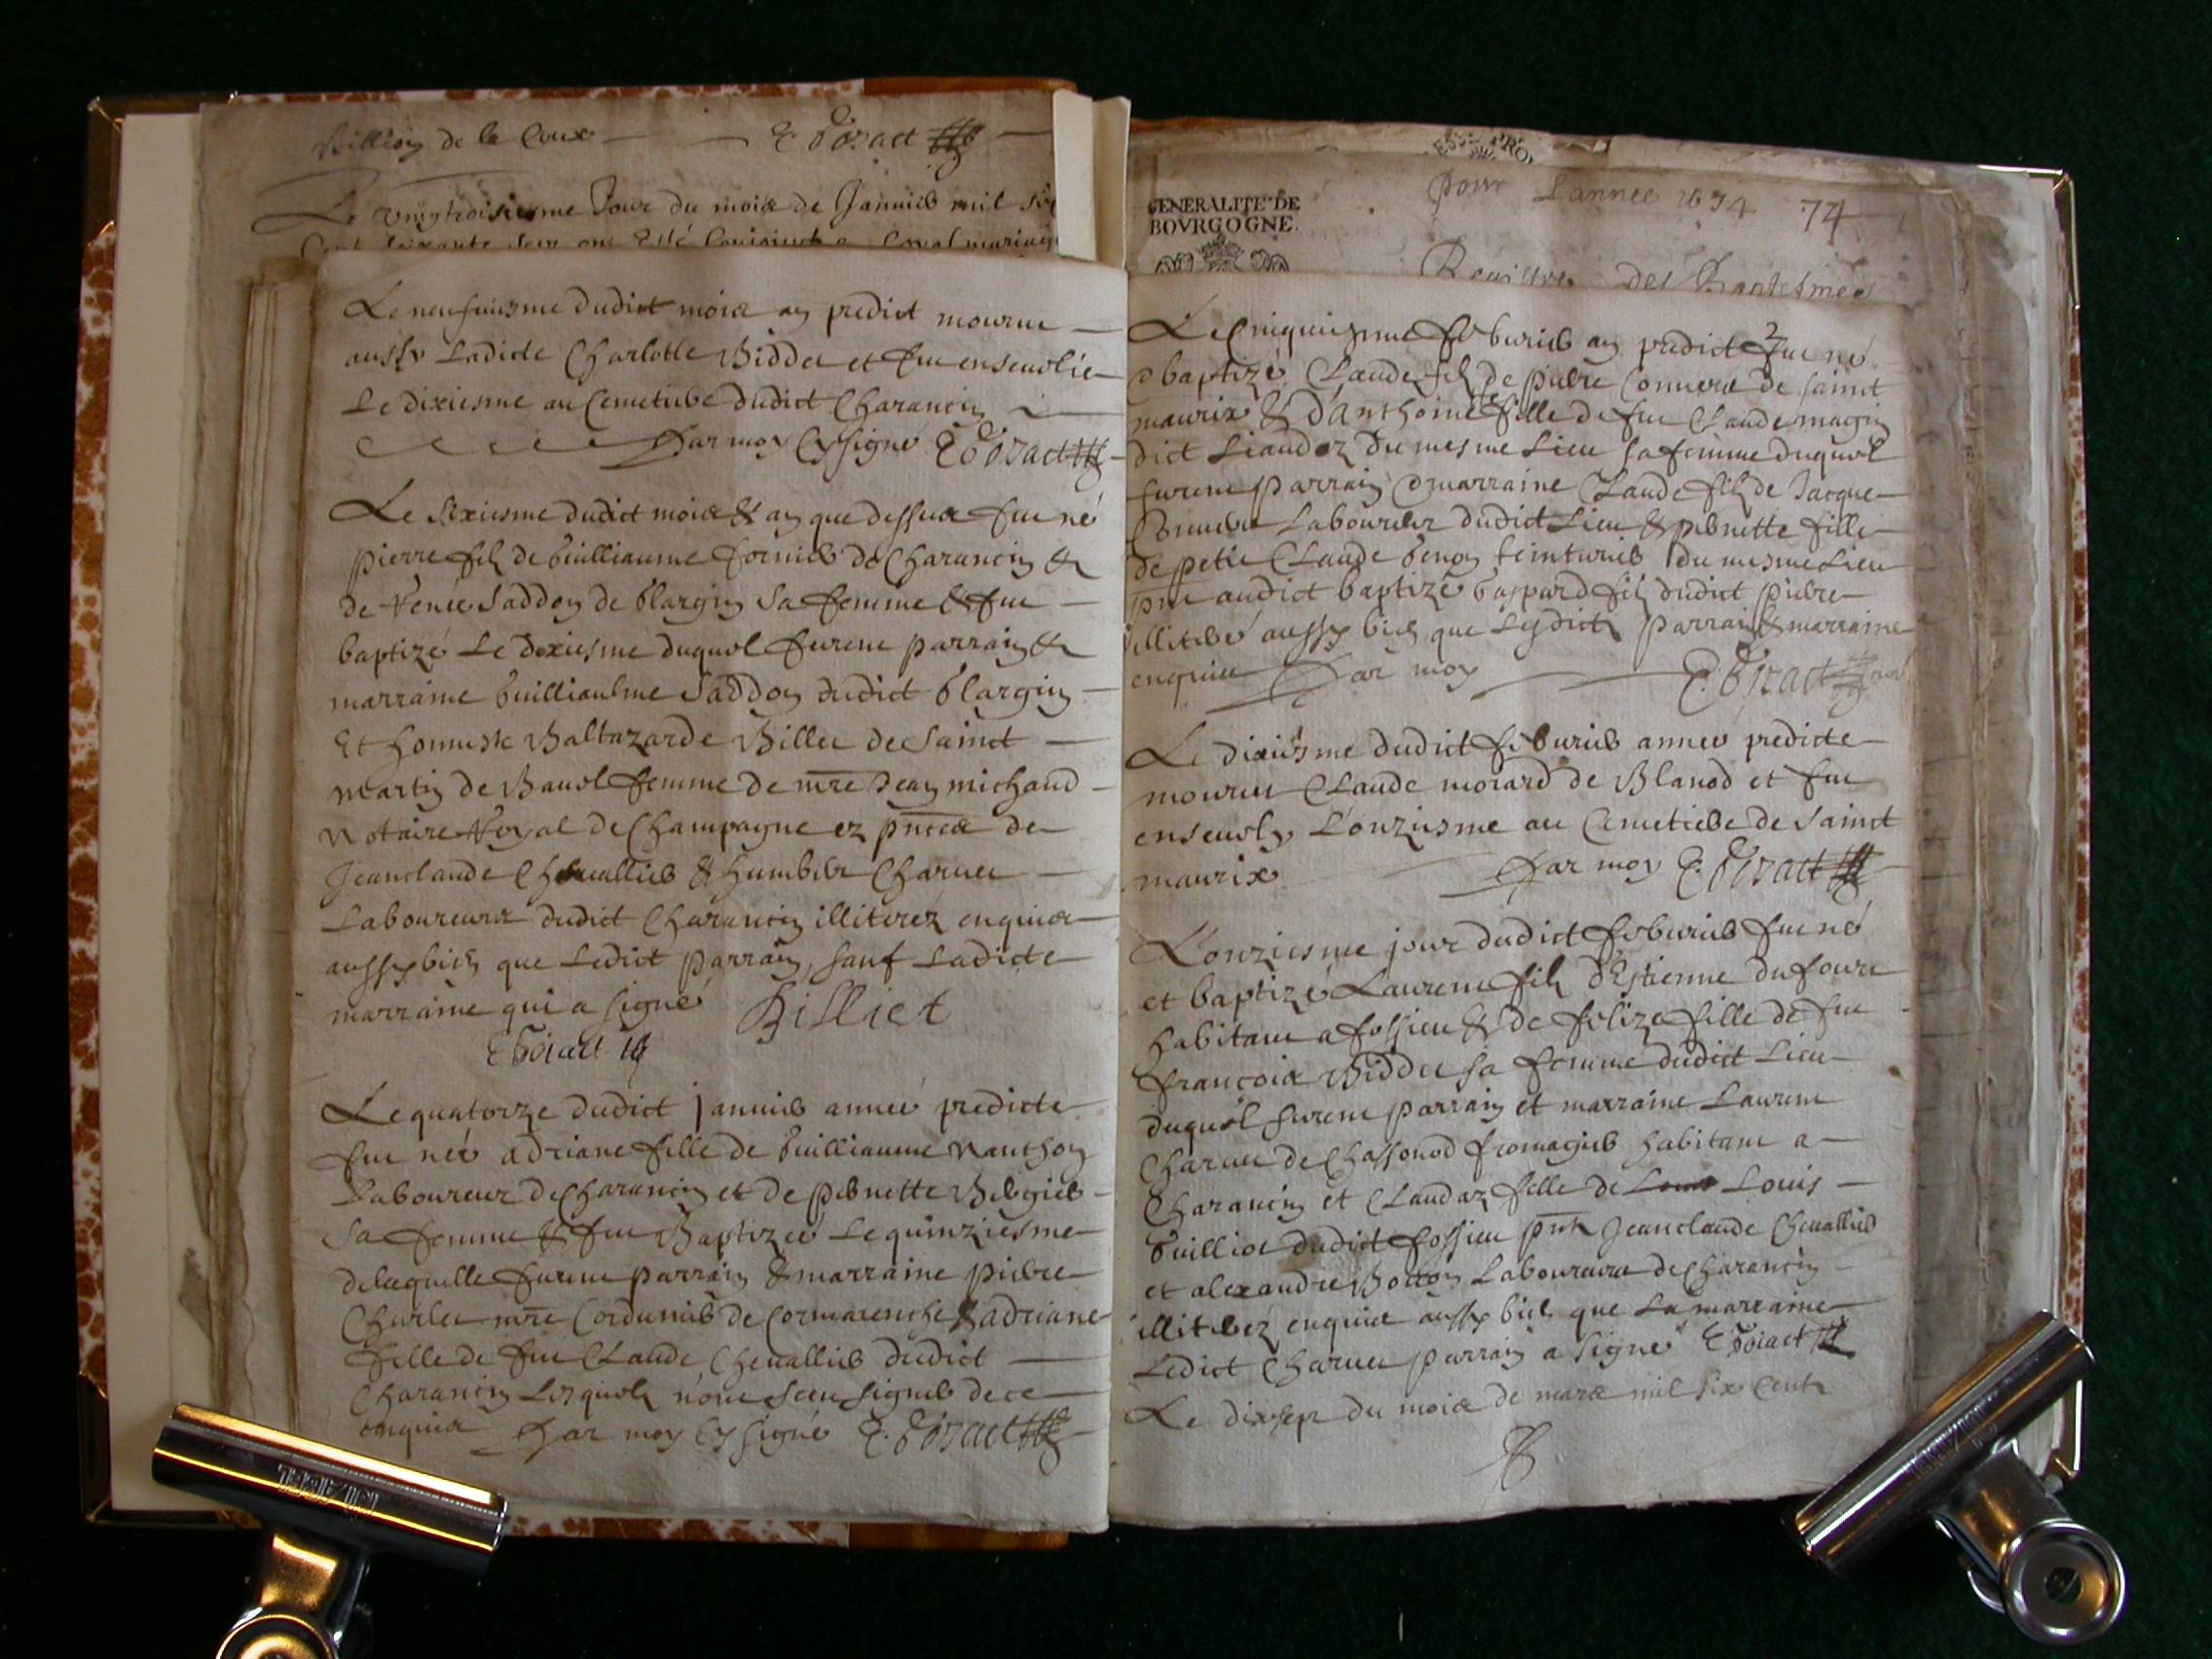 de la Coux
Le vingtroisiesme Jour du mois de Januier mil six
Le neufuiesme dudict mois an predict mourut
aussy Ladicte Charlotte Biddet et fut enseuelie
Le dixiesme au Cemetiere dudict Charancin
Par moy Cy signé
Le Sixiesme dudict mois & an que dessus fut né
pierre filz de Guilliaume Cornier de Charancin &
de Saddon de sa femme & fut
baptizé Le dixiesme duquel furent parrain &
marraine Guilliaulme Saddon dudict
Et honneste Baltazarde Billet de Sainct
Martin de Bauel femme de mre Jean michaud
Notaire Royal de Champagne ez pntces de
Jeanclaude Cheuallier & humbert Charuet
Laboureurs dudict Charancin illiterez enquis
aussy bien que Ledict parrain, sauf Ladicte
marraine qui a signé Billiet
Le quatorze dudict januier année predicte
fut née adriane fille de Guilliaume Nanthon
Laboureur de Charancin et de pernette Bergier
sa femme & fut Baptizée Le quinziesme
de laquelle furent parrain & marraine pierre
Charlet mre Cordunier de Cormarenche & adriane
fille de fut Claude Cheuallier dudict
Charancin Lesquelz n'ont sceu signer de ce
enquis Par moy Cy signé
GENERALITE DE
BOVRGOGNE.
pour L'annee 1674 74
Regillre des Baptesmes
2
Le Cinquiesme feburier an predict fut né
& baptizé Claude filz de pierre de sainct
maurix & d'anthoine fille de fut Claude magnin
dict Liaudoz du mesme Lieu sa femme duquel
furent parrain & marraine Claude filz de Jacque
Laboureur dudict Lieu & pernette fille
de petit Claude Genon teinturier du mesme Lieu
pnt audict baptizé Gaspard filz dudict pierre
illiteré aussy bien que Lesdictz parrain & marraine
enquis Par moy
Le dixiesme dudict feburier année predicte
mourut Claude morard de Blanod et fut
enseuely L'onziesme au Cemetiere de Sainct
maurix Par moy
L'onziesme jour dudict feburier fut né
et baptizé Laurent filz d'Estienne dufour
habitant a fossieu & de felize fille de fut
françois Biddet sa femme dudict Lieu
duquel furent parrain et marraine Laurent
Charuet de Chassonod fromagier habitant a
Charancin et Claudaz fille de Louis
Guilliot dudict fossieu pntz Jeanclaude Cheuallier
et alexandre Botton Laboureurs de Charancin
illiterez enquis aussy bien que La marraine
Ledict Charuet parrain a signé
Le dixsept du mois de mars mil six Centz